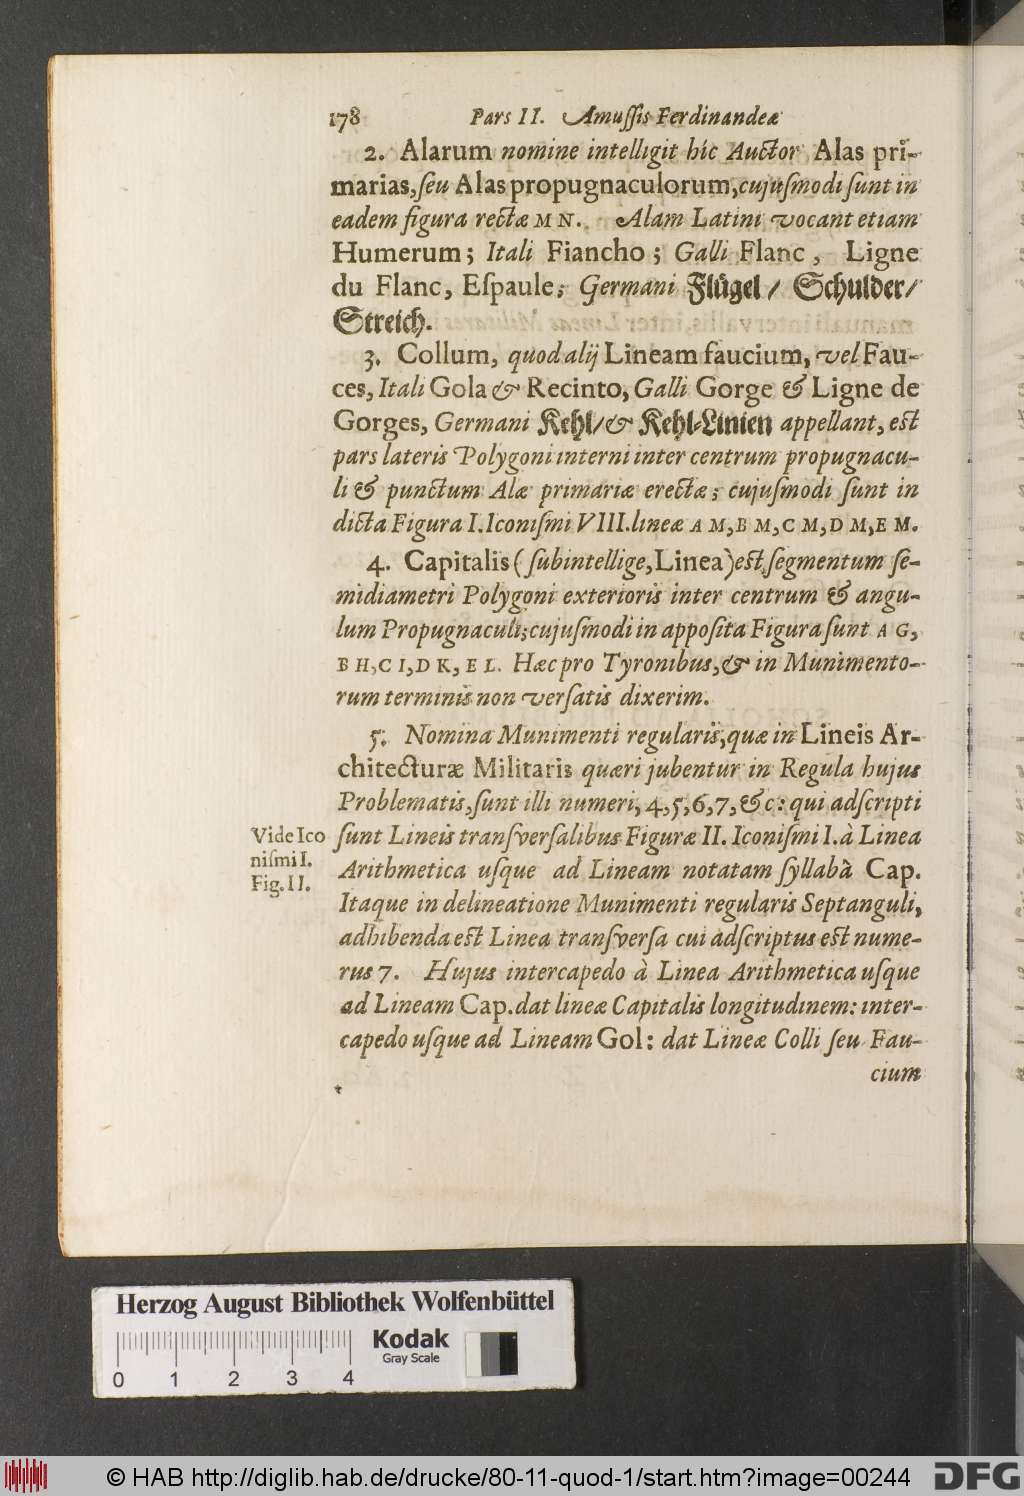 178 Pars II. Amuſſis Ferdinandeæ
2. Alarum nomine intelligit hîc Auctor Alas pri-
marias, ſeu Alas propugnaculorum, cujuſmodi ſunt in
eadem figura rectæ M N. Alam Latini vocant etiam
Humerum; Itali Fiancho; Galli Flanc, Ligne
du Flanc, Eſpaule; Germani Flügel / Schulder/
Streich.
3. Collum, quod alij Lineam faucium, vel Fau-
ces, Itali Gola & Recinto, Galli Gorge & Ligne de
Gorges, Germani Kehl/ & Kehl-Linien appellant, est
pars lateris Polygoni interni inter centrum propugnacu-
li & punctum Alæ primariæ erectæ; cujuſmodi ſunt in
dicta Figura I. Iconiſmi VIII. lineæ A M, B M, C M, D M, E M.
4. Capitalis (ſubintellige, Linea) est ſegmentum ſe-
midiametri Polygoni exterioris inter centrum & angu-
lum Propugnaculi; cujuſmodi in appoſita Figura ſunt A G,
B H, C I, D K, E L. Hæc pro Tyronibus, & in Munimento-
rum terminis non verſatis dixerim.
5. Nomina Munimenti regularis, quæ in Lineis Ar-
chitecturæ Militaris quæri jubentur in Regula hujus
Problematis, ſunt illi numeri, 4, 5, 6, 7, &c: qui adſcripti
ſunt Lineis tranſverſalibus Figuræ II. Iconiſmi I. à Linea
Arithmetica uſque ad Lineam notatam ſyllabà Cap.
Itaque in delineatione Munimenti regularis Septanguli,
adhibenda est Linea tranſverſa cui adſcriptus est nume-
rus 7. Hujus intercapedo à Linea Arithmetica uſque
ad Lineam Cap. dat lineæ Capitalis longitudinem: inter-
capedo uſque ad Lineam Gol: dat Lineæ Colli ſeu Fau-
cium
Vide Ico
niſmi I.
Fig. II.
*
Herzog August Bibliothek Wolfenbüttel
Kodak
Gray Scale
0 1 2 3 4
© HAB http://diglib.hab.de/drucke/80-11-quod-1/start.htm?image=00244
DFG